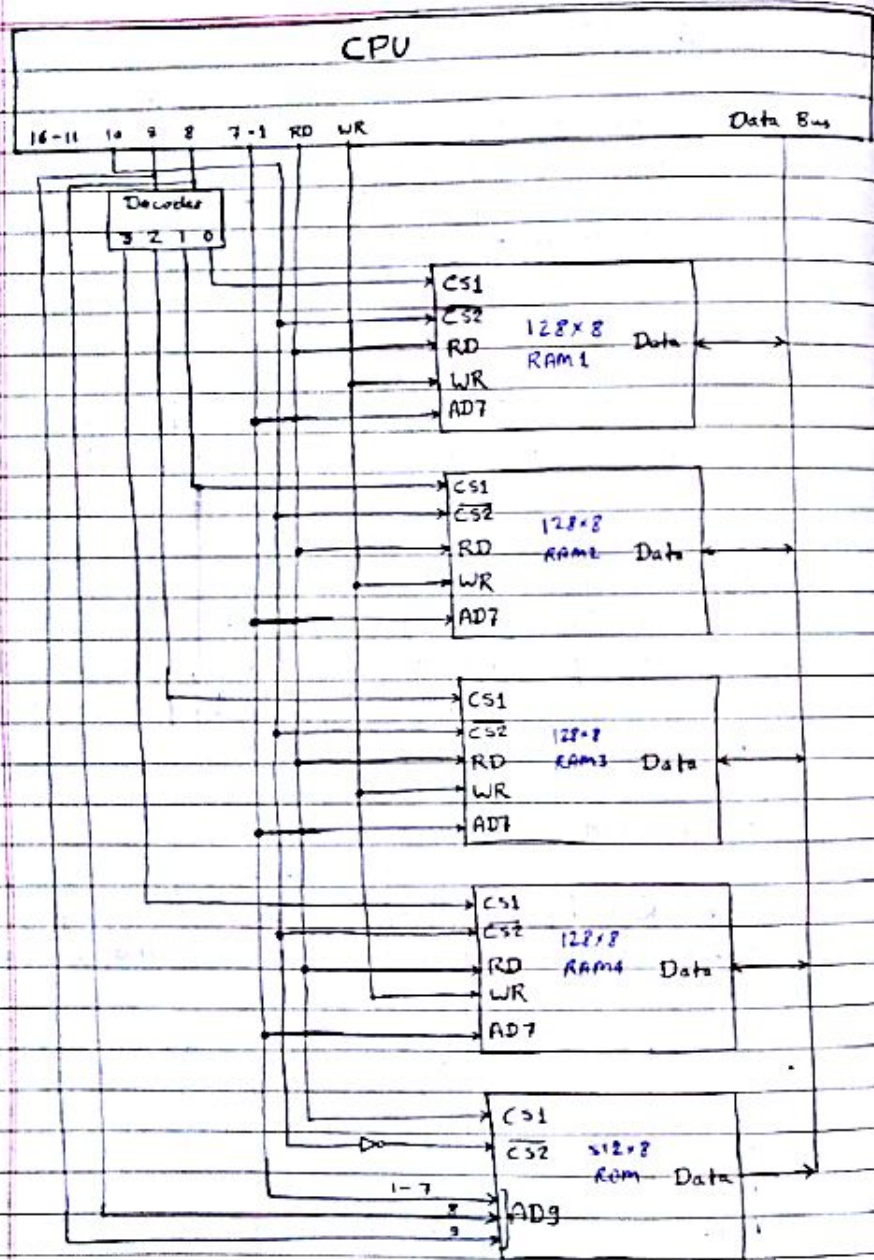 CPU
16-11 10 9 8 7-1 RD WR Data Bus
Decoder
3 2 1 0
CS1
CS2
RD
WR
AD7
128×8
RAM1
Data
CS1
CS2
RD
WR
AD7
128×8
RAM2
Data
CS1
CS2
RD
WR
AD7
128×8
RAM3
Data
CS1
CS2
RD
WR
AD7
128×8
RAM4
Data
CS1
CS2
512×8
ROM
Data
1-7
8
9
AD9